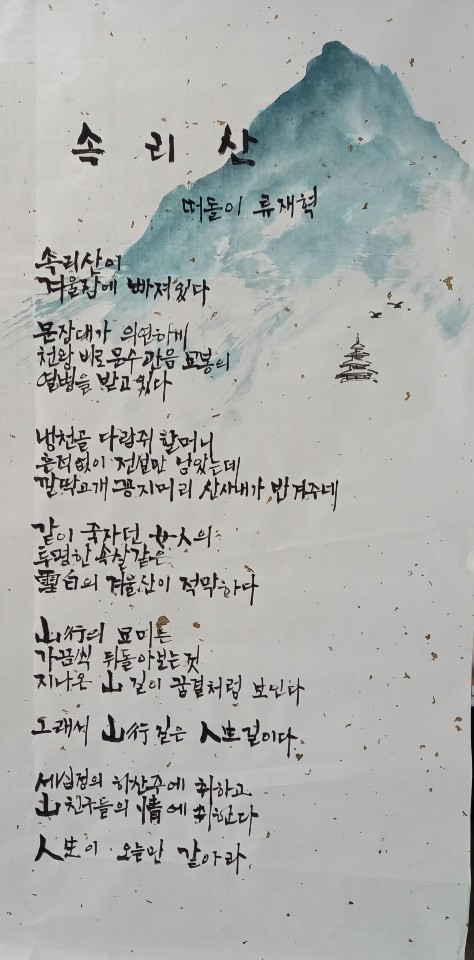 속리산
떠돌이 류재혁
속리산이
겨울잠에 빠져있다
문장대가 의연하게
천왕 비로 문수 관음 고봉의
열병을 받고 있다
냉천골 다람쥐 할머니
흔적없이 전설만 남았는데
깔딱고개 꽁지머리 산사내가 반겨주네
같이 죽자던 女人의
투명한 속살같은
雪白의 겨울산이 적막하다
山行의 묘미는
가끔씩 뒤돌아보는것
지나온 山길이 꿈결처럼 보인다
그래서 山行길은 人生길이다
세심정의 하산주에 취하고
山친구들의 情에 취한다
人生이 오늘만 같아라